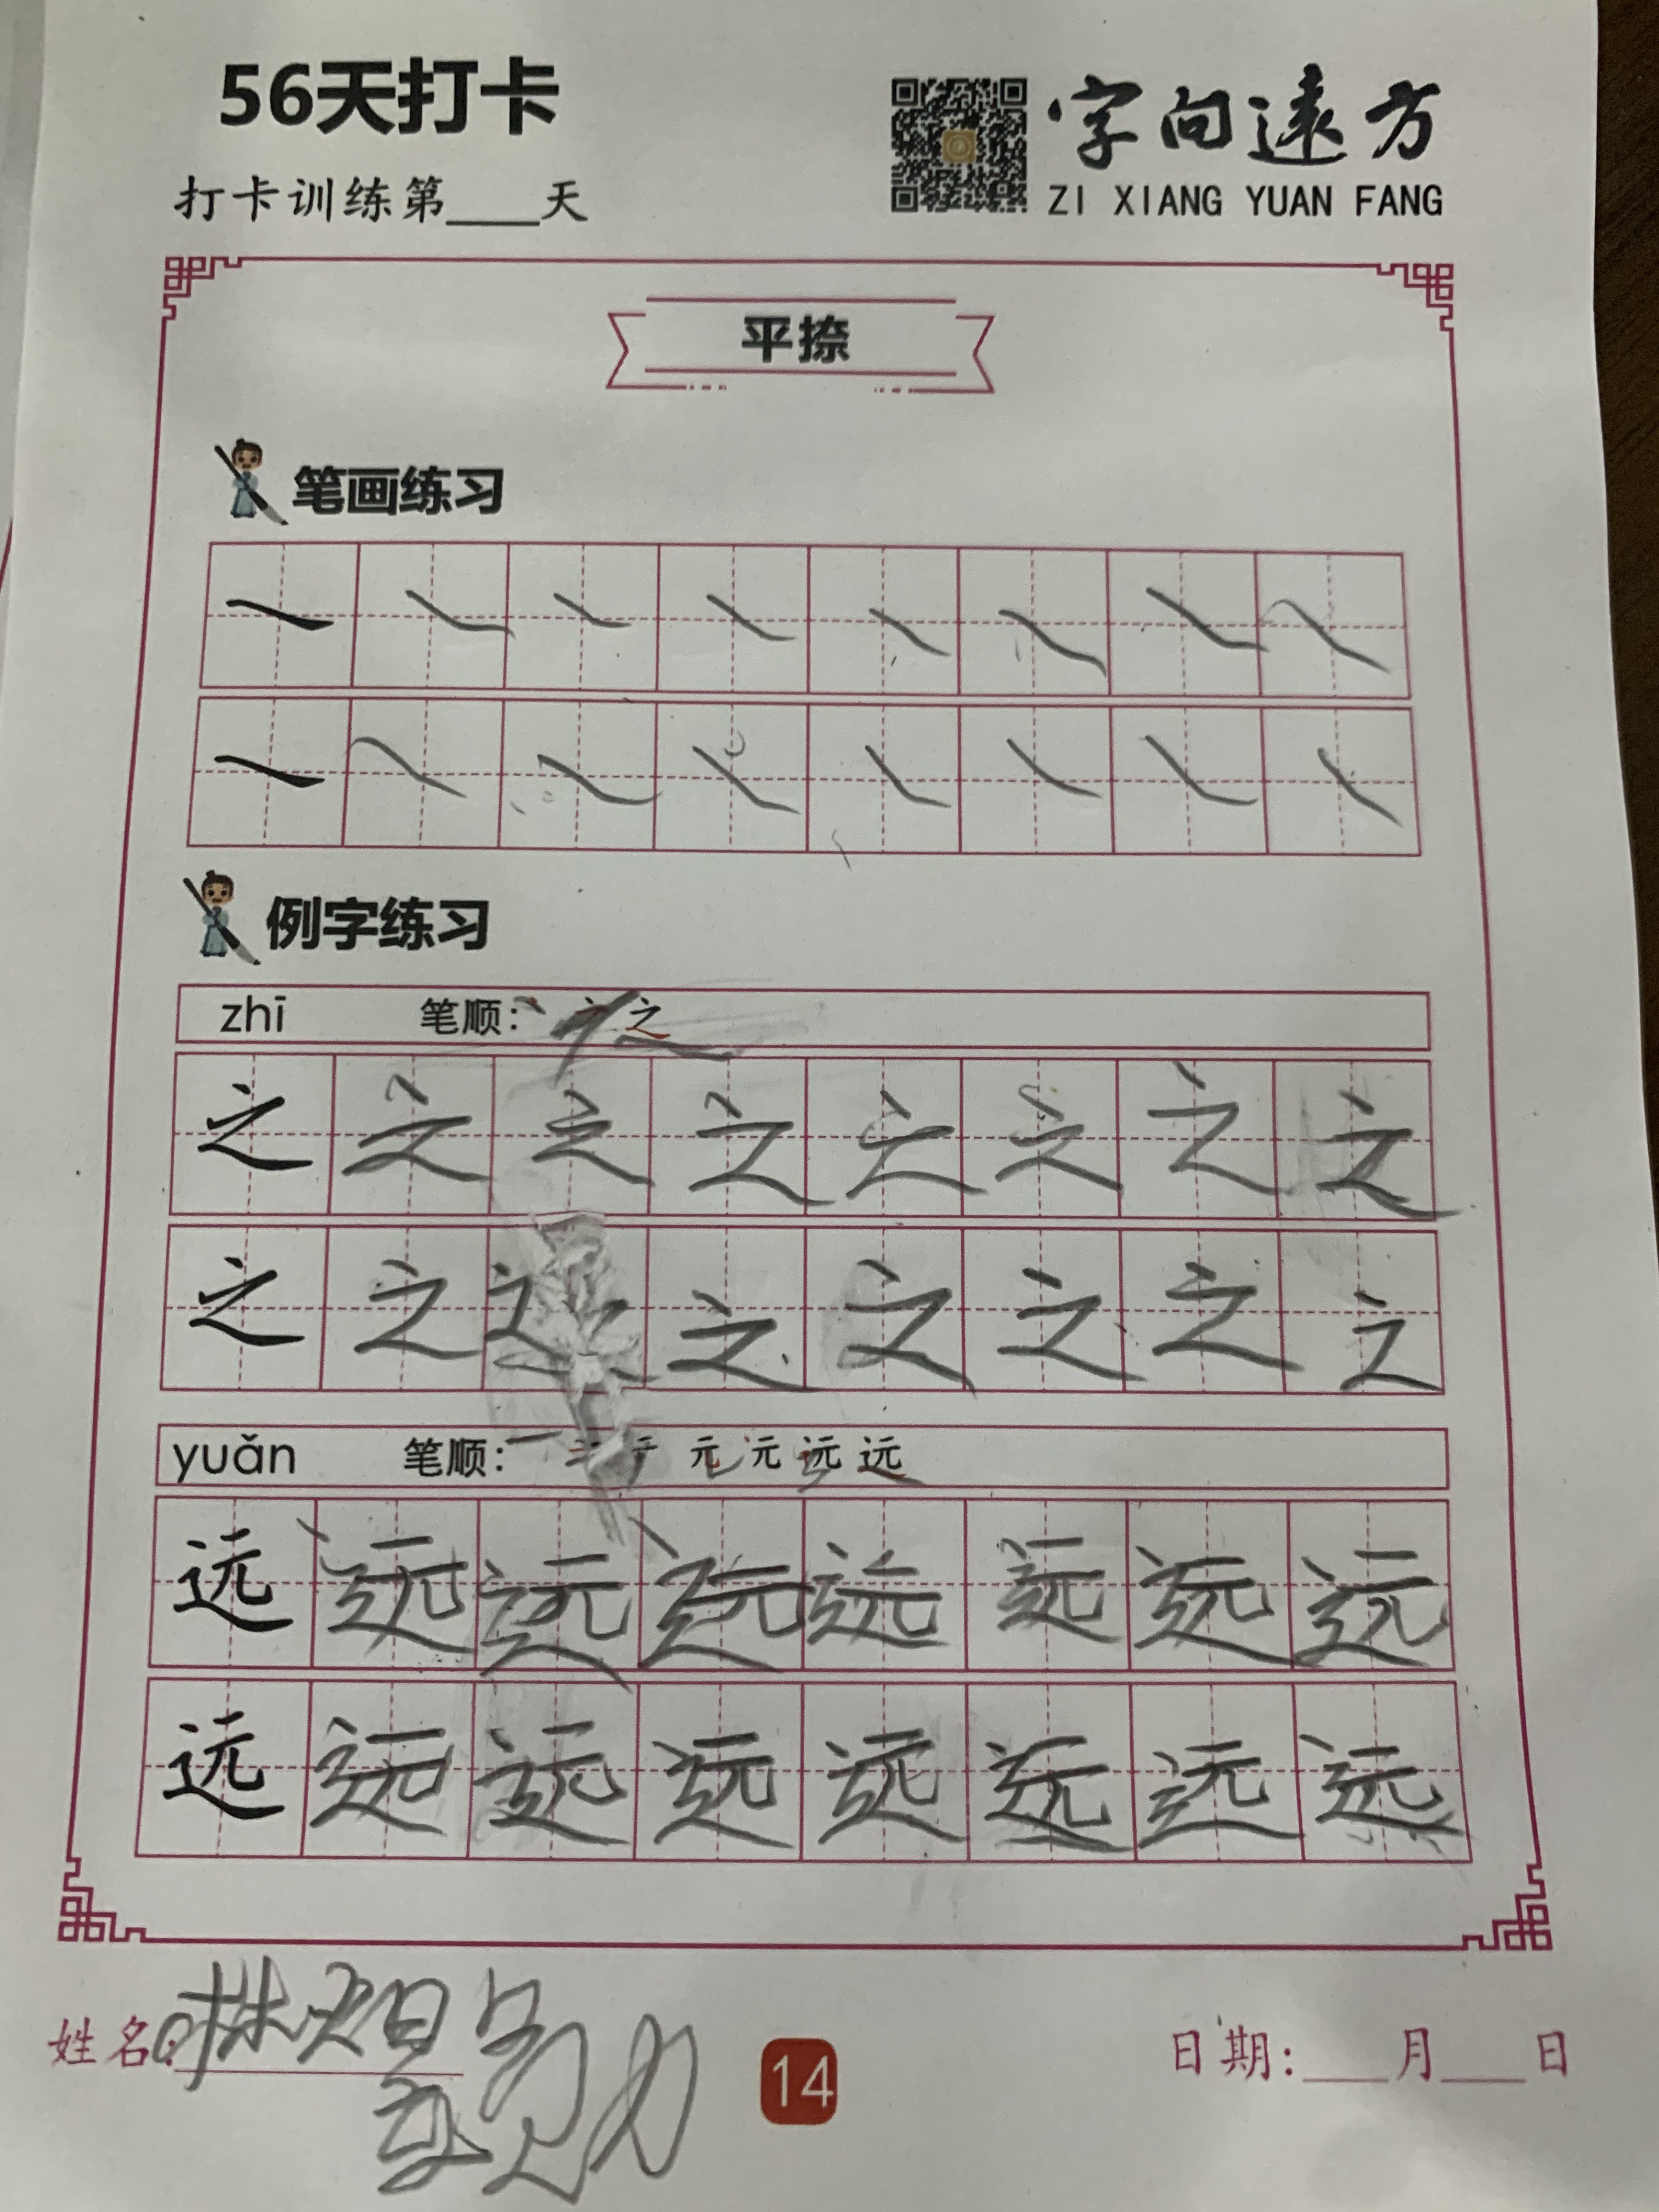 56天打卡
字向远方
ZI XIANG YUAN FANG
打卡训练第____天
平捺
笔画练习
例字练习
zhī 笔顺: 丶 之
之 之 之 之 之 之 之 之
之 之 之 之 之 之 之
yuǎn 笔顺: 一 二 テ 元 元 远 远
远 远 远 远 远 远 远 远
远 远 远 远 远 远 远 远
姓名:
14
日期:___月___日